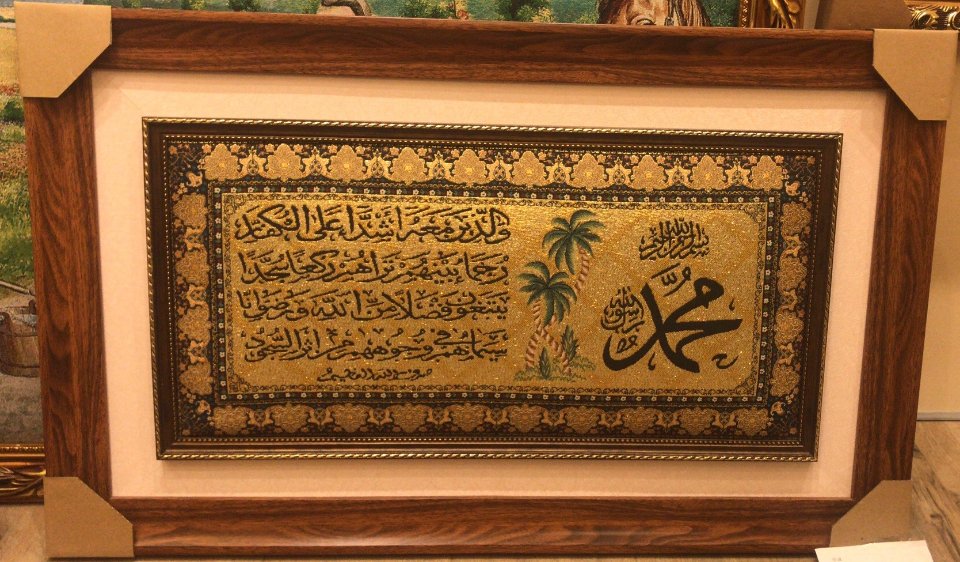 بسم الله الرحمن الرحيم
محمد
رسول الله
والذين معه اشداء على الكفار
رحماء بينهم تراهم ركعا سجدا
يبتغون فضلا من الله ورضوانا
سيماهم في وجوههم من اثر السجود